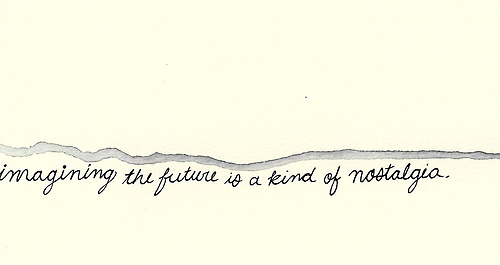 imagining the future is a kind of nostalgia.